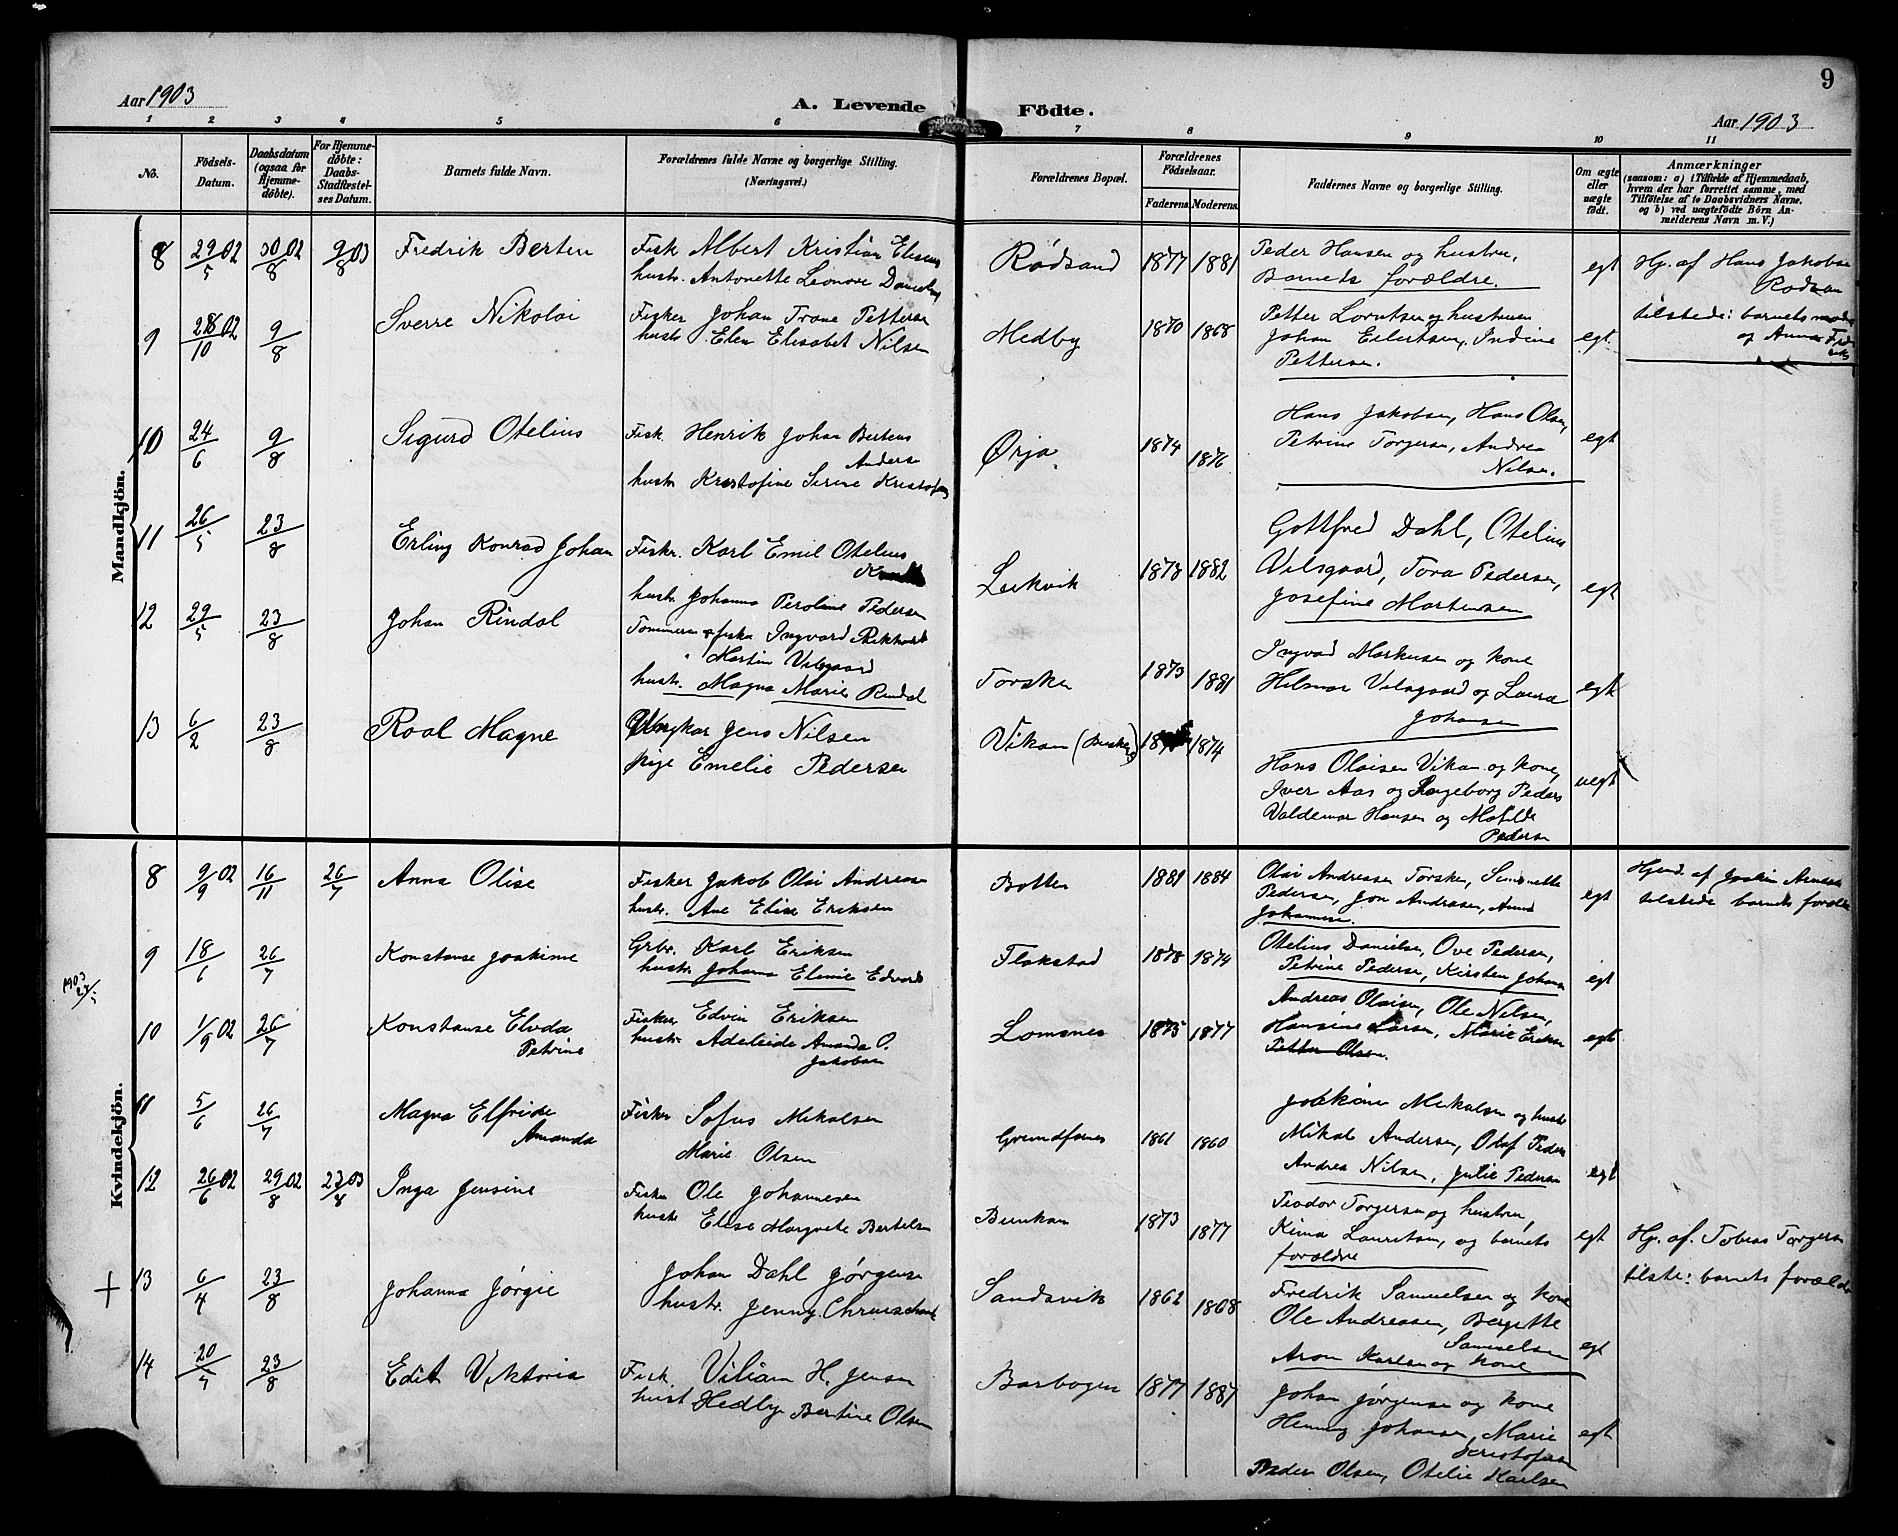 9
Aar 1903
A. Levende Födte.
Aar 1903
1 2 3 4 5 6 7 8 9 10 11
No.
Födsels-Datum.
Daabsdatum (ogsaa for Hjemmedöbte).
For Hjemmedöbte: Daabs-Stadfæstelses Datum.
Barnets fulde Navn.
Forældrenes fulde Navne og borgerlige Stilling.
(Næringsvei.)
Forældrenes Bopæl.
Forældrenes Födselsaar.
Faderens. Moderens.
Faddernes Navne og borgerlige Stilling.
Om ægte eller uægte födt.
Anmærkninger
(saasom: a) i Tilfælde af Hjemmedaab,
hvem der har forrettet samme, med
Tilföielse af to Daabsvidners Navne,
og b) ved uægtefödte Börn An-
melderens Navn m. V.)
Mandkjön.
8 29/5 02 30/8 02 9/8 03 Fredrik Berten
Fisk Albert Kristian
hustr. Antonette Leonore
Rødsand 1877 1881
Peder Hansen og hustru,
Barnets forældre.
egt
Hj. af Hans Jakobse
tilstede: barnets
og Anna
9 10 02 9/8 Sverre Nikolai
Fisker Johan Trane Petterse
hustr Elen Elisabet Nilsen
Medby 1870 1868
Petter Lorntsen og hustruen
Johan Eilertsen, Indine
Pettersen.
egt.
10 24/6 9/8 Sigurd Otelius
Fisk. Henrik Johan Bertens
Anderse
hustr Kristofine Serine
Ørja 1874 1876
Hans Jakobsen, Hans Olsen,
Petrine Torgersen, Andrea
Nilsen.
egt
11 26/5 23/8 Erling Konrad Johan
Fiskr. Karl Emil Otelius
hustr Johanna Peroline Pedersen
Lekvik 1878 1882
Gottfred Dahl, Otelius
Vilsgaard, Tora Pedersen,
Josefine Martensen
egt
12 29/5 23/8 Johan Rindal
Ingvard Rikhard
Martin Vilsgaard
hustr. Magna Marie Rindal
Torsken 1873 1881
Ingvad Markusen og kone
Hilmar Vilsgaard og Laura
Johansen
egt
13 6/2 23/8 Roal Magne
Ungkar Jens Nilsen
pige Emelie Pedersen
Vikan 1874
Hans Olaisen Vikan og kone,
Iver Aas og Ingeborg Peders
Valdemar Hansen og Matilde
Pedersen
uegt
Kvindekjön.
8 9/9 02 16/11 26/7 Anna Olise
Fisker Jakob Olai Andreasen
hustr. Ane Elise Eriksen
Botten 1881 1884
Olai Andreasen Torsken,
Pedersen, Jon Andreasen, Anna
Johannese.
egt
Hjemd. af
tilstede barnets forældre
9 18/6 26/7 Konstanse Joakime
Grbr. Karl Eriksen
hustr. Johanna Elenie Edvards
Flakstad 1878 1874
Otelius Danielsen, Ove Pedersen,
Petrine Pedersen, Kirsten Johans
egt
1903
10 1/9 02 26/7 Konstanse Elvda
Petrine
Fisker Edvin Eriksen
hustr. Adeleide Amanda O.
Jakobsen
Lomsnes 1875 1877
Andreas Olaisen, Ole Nilsen,
Hansine Larsen, Marie Eriksen
Petter Olsen.
egt
11 5/6 26/7 Magna Elfride
Amanda
Fisker Sofus Mikalsen
Marie Olsen
Grundfarnes 1861 1860
Mikalsen og hustr
Mikal Andersen, Olaf Peder
Andrea Nilsen, Julie Pedersen
egt
12 26/6 02 29/8 02 23/8 03 Inga Jensine
Fisker Ole Johannesen
hustr Elise Margrete Bertelsen
Bunkan 1873 1877
Teodor Torgersen og hustru,
Kima Lauritsen, og barnets
forældre
egt
Hj. af. Tobias Torgersen
tilste: barnets forældre
+
13 6/4 23/8 Johanna Jørgie
Johan Dahl Jørgense
hustr. Jenny
Sandsvik 1862 1868
Fredrik Samuelsen og kone
Ole Andreassen, Bergette
Samuelsen
Aron Karlsen og kone
egt
14 20/7 23/8 Edit Viktoria
Fisk. Viliam H. Jensen
hust Hedvig Bertine Olsen
Barbogen 1877 1887
Johan Jørgense og kone
Henning Johansen, Marie
Kristofersen
Peder Olsen, Otelie Karlsen
egt